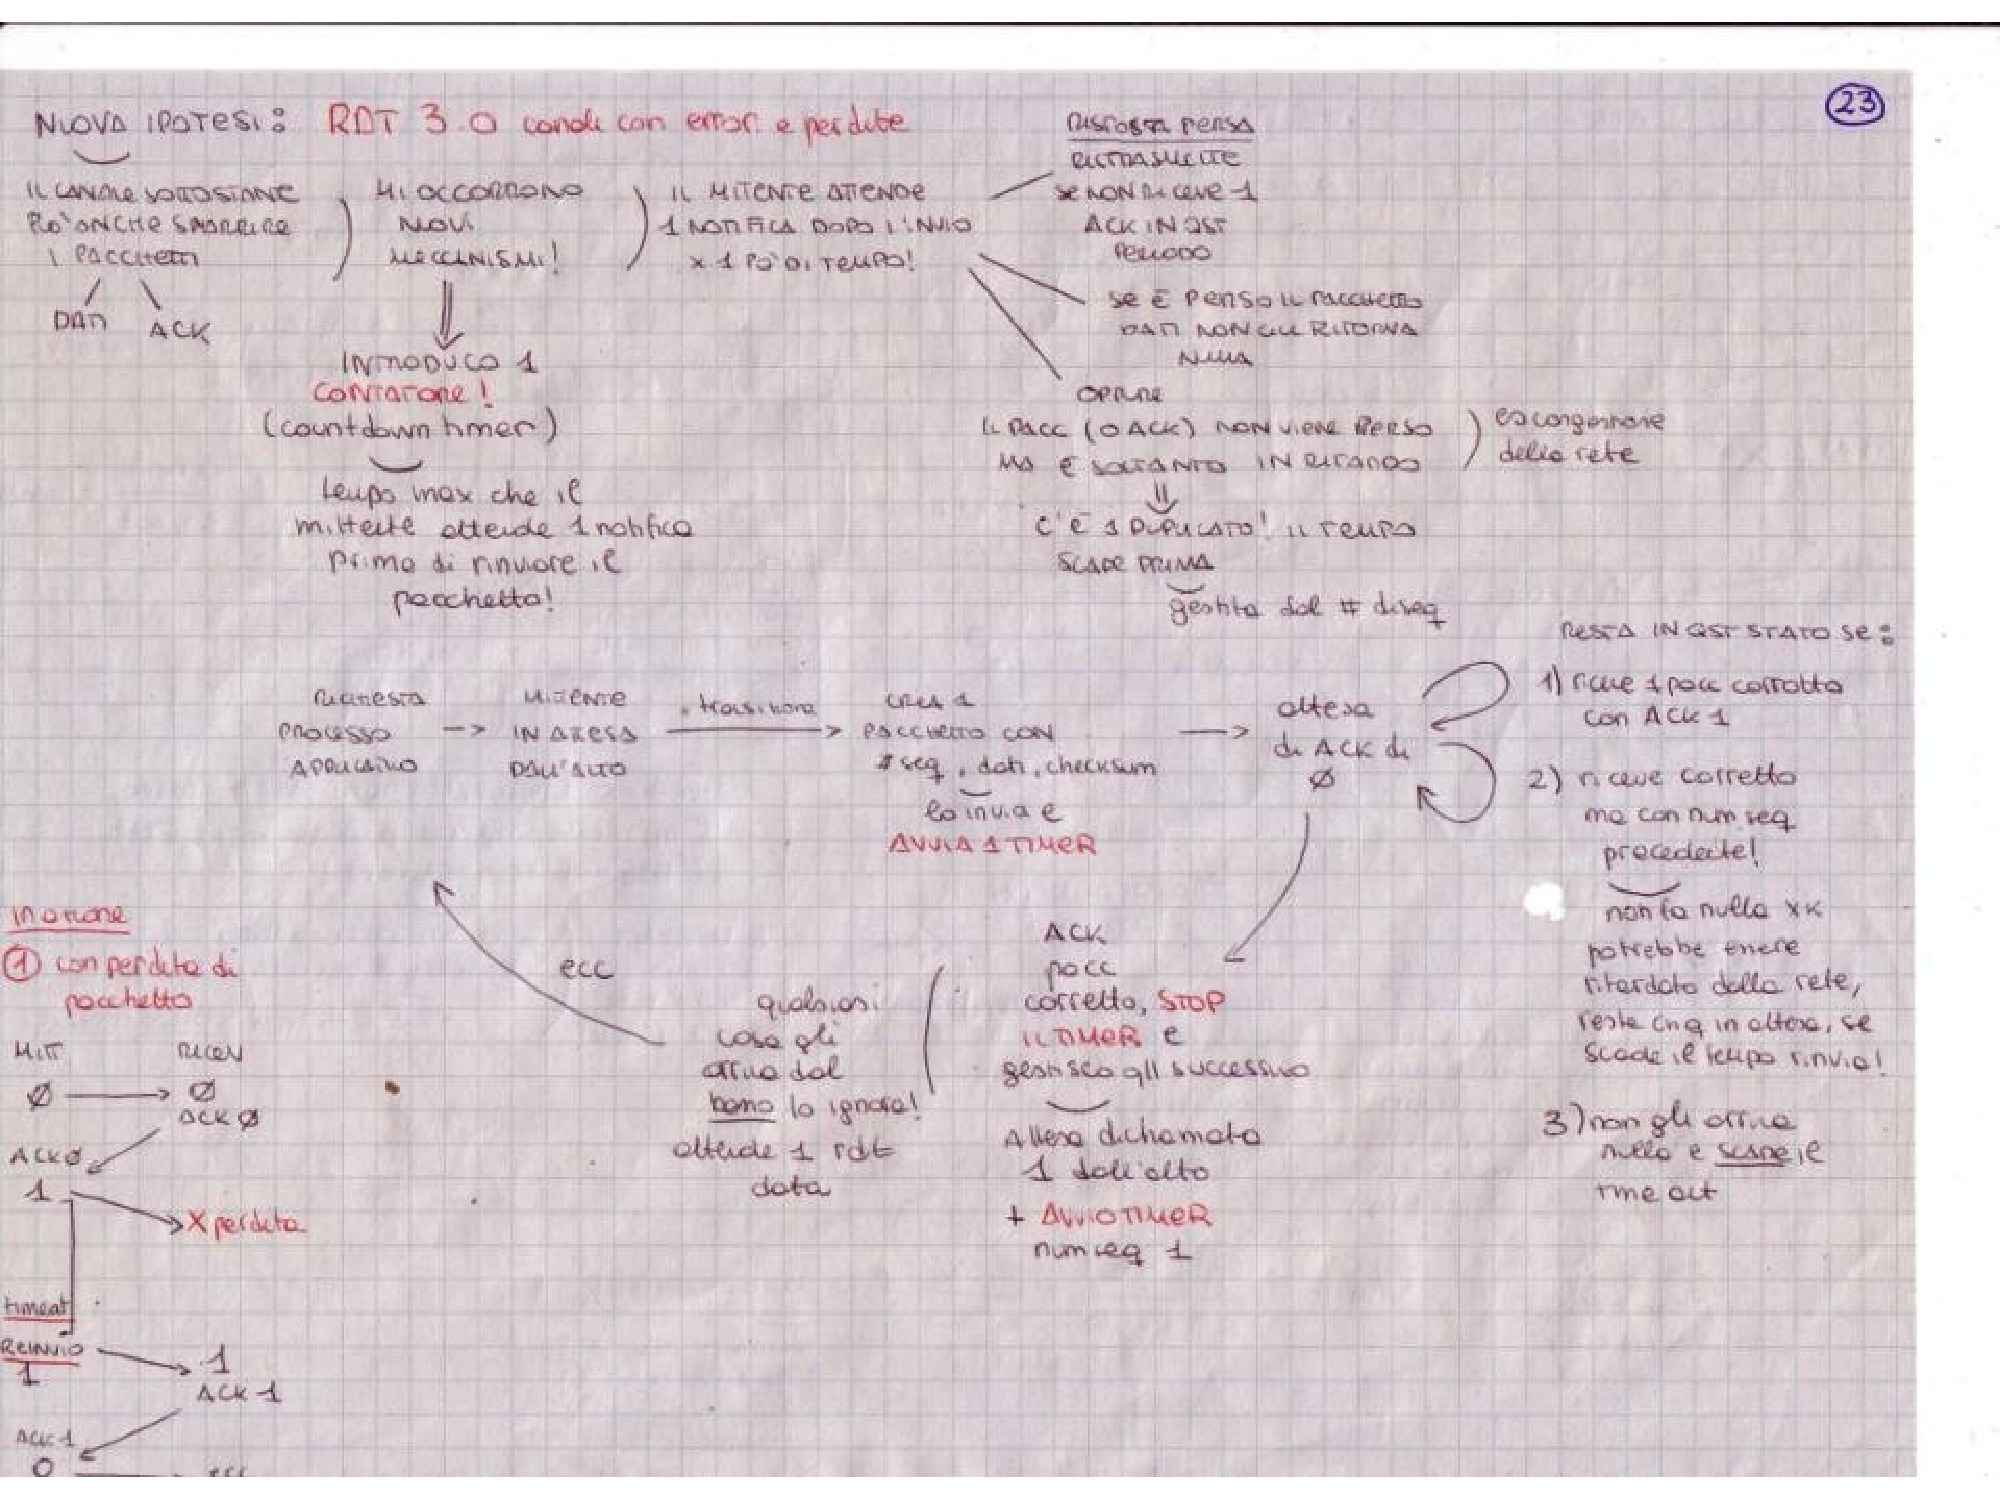 23
NUOVA IPOTESI: RDT 3.0 canali con errori e perdite
IL CANALE SOTTOSTANTE
PUO' ANCHE SMARRIRE
I PACCHETTI
DATI
ACK
MI OCCORRONO
NUOVI
MECCANISMI!
INTRODUCO 1
CONTATORE!
(countdown timer)
tempo max che il
mittente attende 1 notifica
prima di rinviare il
pacchetto!
IL MITENTE ATTENDE
1 NOTIFICA DOPO L'INVIO
x 1 PO' DI TEMPO!
RISPOSTA PERSA
RITRASMETTE
se NON RICEVE 1
ACK IN QST
PERIODO
SE È PERSO IL PACCHETTO
DATI NON GLI RITORNA
NULLA
OPPURE
IL PACC (O ACK) NON VIENE PERSO
MA È SOLTANTO IN RITARDO
es congestione
della rete
C'È 1 DUPLICATO! IL TEMPO
SCADE PRIMA
gestito dal # di seq
RICHIESTA
PROCESSO
APPLICATIVO
MITENTE
IN ATTESA
DALL'ALTO
transizione
CREA 1
PACCHETTO CON
# seq, dati, checksum
lo invia e
AVVIA 1 TIMER
attesa
di ACK di
Ø
RESTA IN QST STATO SE:
1) riceve 1 pacc corrotto
con ACK 1
2) riceve corretto
ma con num seq
precedente!
non fa nulla xk
potrebbe essere
ritardato dalla rete,
resta cnq in attesa, se
scade il tempo rinvia!
3) non gli arriva
nulla e scade il
time out
ACK
pacc
corretto, STOP
IL TIMER e
gestisco gli successivo
Attesa di chiamata
1 dall'alto
+ AVVIO TIMER
num seq 1
qualsiasi
cosa gli
arriva dal
basso la ignora!
attende 1 rdt
data
ecc
in azione
1 con perdita di
pacchetto
MITT RICEV
Ø Ø
ACK Ø
ACK Ø
1
X perdita
timeout
REINVIO
1
1
ACK 1
ACK 1
0 ecc